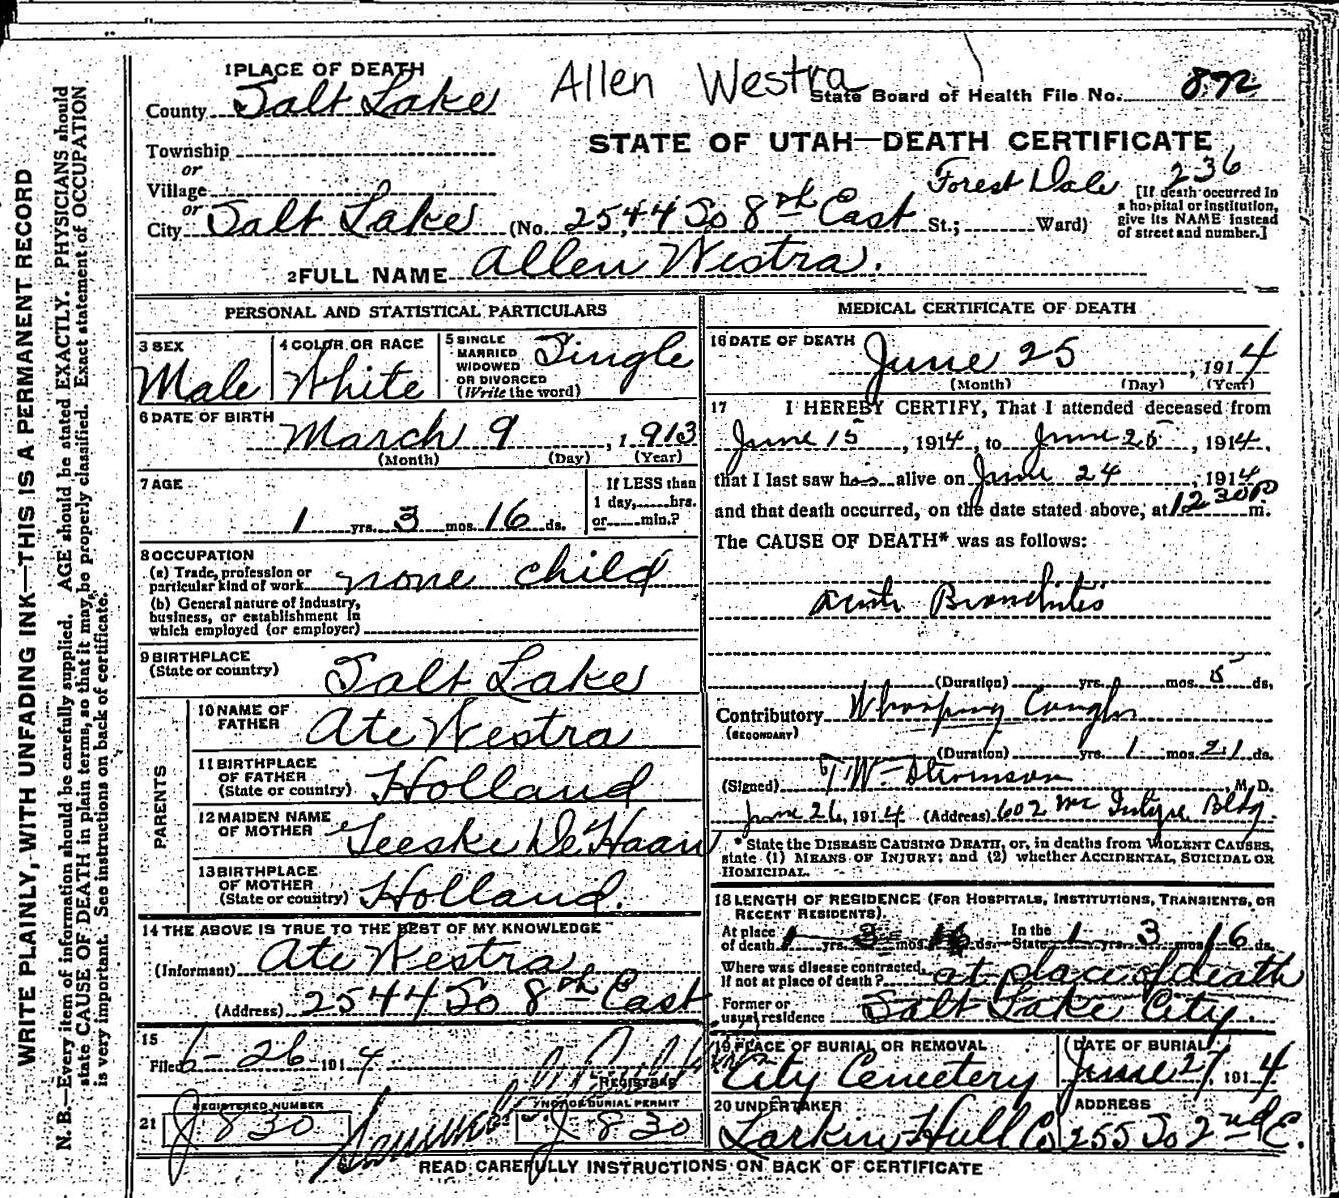 WRITE PLAINLY, WITH UNFADING INK—THIS IS A PERMANENT RECORD
N. B.—Every item of information should be carefully supplied. AGE should be stated EXACTLY. PHYSICIANS should
state CAUSE OF DEATH in plain terms, so that it may be properly classified. Exact statement of OCCUPATION
is very important. See instructions on back of certificate.
Allen Westra
1 PLACE OF DEATH
County Salt Lake
State Board of Health File No. 872
Township
or
Village
or
City Salt Lake (No. 2544 So 8th East St.; Ward)
STATE OF UTAH—DEATH CERTIFICATE
Forest Dale 236
[If death occurred in
a hospital or institution,
give its NAME instead
of street and number.]
2 FULL NAME Allen Westra.
PERSONAL AND STATISTICAL PARTICULARS
3 SEX
Male
4 COLOR OR RACE
White
5 SINGLE
MARRIED
WIDOWED
OR DIVORCED
(Write the word)
Single
6 DATE OF BIRTH
March 9, 1913
(Month) (Day) (Year)
7 AGE
1 yrs. 3 mos. 16 ds.
If LESS than
1 day, hrs.
or min.?
8 OCCUPATION
(a) Trade, profession or
particular kind of work none child
(b) General nature of industry,
business, or establishment in
which employed (or employer)
9 BIRTHPLACE
(State or country) Salt Lake
PARENTS
10 NAME OF
FATHER Ate Westra
11 BIRTHPLACE
OF FATHER
(State or country) Holland
12 MAIDEN NAME
OF MOTHER Teeske De Haan
13 BIRTHPLACE
OF MOTHER
(State or country) Holland.
14 THE ABOVE IS TRUE TO THE BEST OF MY KNOWLEDGE
(Informant) Ate Westra
(Address) 2544 So 8th East
15
Filed 6-26- 1914
REGISTRAR
21
REGISTERED NUMBER
J 830
NO. OF BURIAL PERMIT
J 830
MEDICAL CERTIFICATE OF DEATH
16 DATE OF DEATH
June 25, 1914
(Month) (Day) (Year)
17 I HEREBY CERTIFY, That I attended deceased from
June 15, 1914, to June 25, 1914.
that I last saw him alive on June 24, 1914
and that death occurred, on the date stated above, at 12 30 P m.
The CAUSE OF DEATH* was as follows:
Acute Bronchitis
(Duration) yrs. mos. 5 ds.
Contributory Whooping Cough
(SECONDARY)
(Duration) yrs. 1 mos. 21 ds.
(Signed) T W Stevenson M. D.
June 26, 1914 (Address) 602 Mc Intyre Bldg.
* State the DISEASE CAUSING DEATH, or, in deaths from VIOLENT CAUSES,
state (1) MEANS OF INJURY; and (2) whether ACCIDENTAL, SUICIDAL OR
HOMICIDAL.
18 LENGTH OF RESIDENCE (FOR HOSPITALS, INSTITUTIONS, TRANSIENTS, OR
RECENT RESIDENTS).
At place
of death 1 yrs. 3 mos. 16 ds. In the State 1 yrs. 3 mos. 16 ds.
Where was disease contracted,
if not at place of death? at place of death
Former or
usual residence Salt Lake City.
19 PLACE OF BURIAL OR REMOVAL
City Cemetery
DATE OF BURIAL
June 27, 1914
20 UNDERTAKER
Larkin Hull Co
ADDRESS
255 So 2nd E.
READ CAREFULLY INSTRUCTIONS ON BACK OF CERTIFICATE